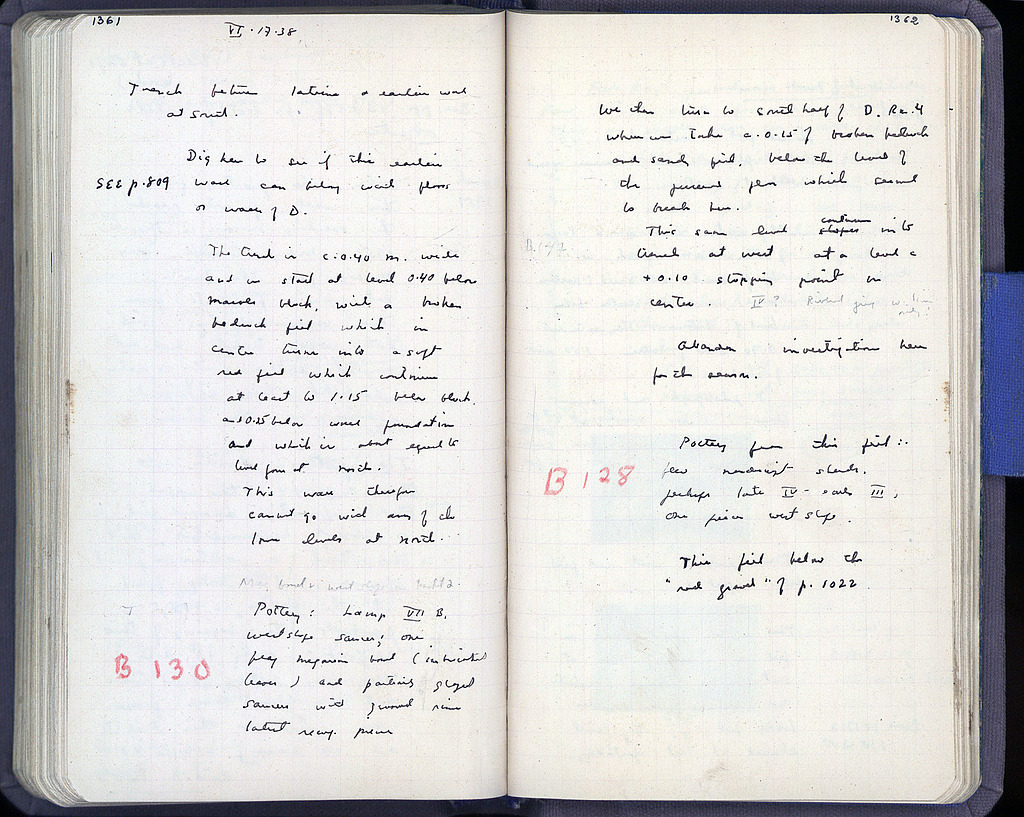 1361
VI·17·38
Trench between latrine & earlier wall
at South.
Dig here to see if this earlier
SEE p.809
wall can belong with floors
or walls of D.
The trench is c. 0.40 m. wide
and we start at level 0.40 below
marble block, with a broken
bedrock fill which in
center turns into a soft
red fill which continues
at least to 1.15 below block
and 0.25 below wall foundation
and which is about equal to
level found at north.
This wall therefore
cannot go with any of the
lower levels at north.
Pottery: Lamp VII B,
westslope saucer; one
frag megarian bowl (imbricated
B 130
leaves) and partially glazed
saucers with grooved rim
latest recog. piece
1362
We then turn to south half of D. Rm. 4
where we take c. 0.15 of broken bedrock
and sandy fill, below the level of
the general floor which seemed
to break here.
This same level continues
slopes into
trench at west at a level c
+0.10 stopping point in
center. IV?
B.142
Abandon investigation here
for the season.
Pottery from this fill:
B 128
few nondescript sherds,
perhaps late IV - early III,
one piece west slope.
This fill below the
"road gravel" of p. 1022